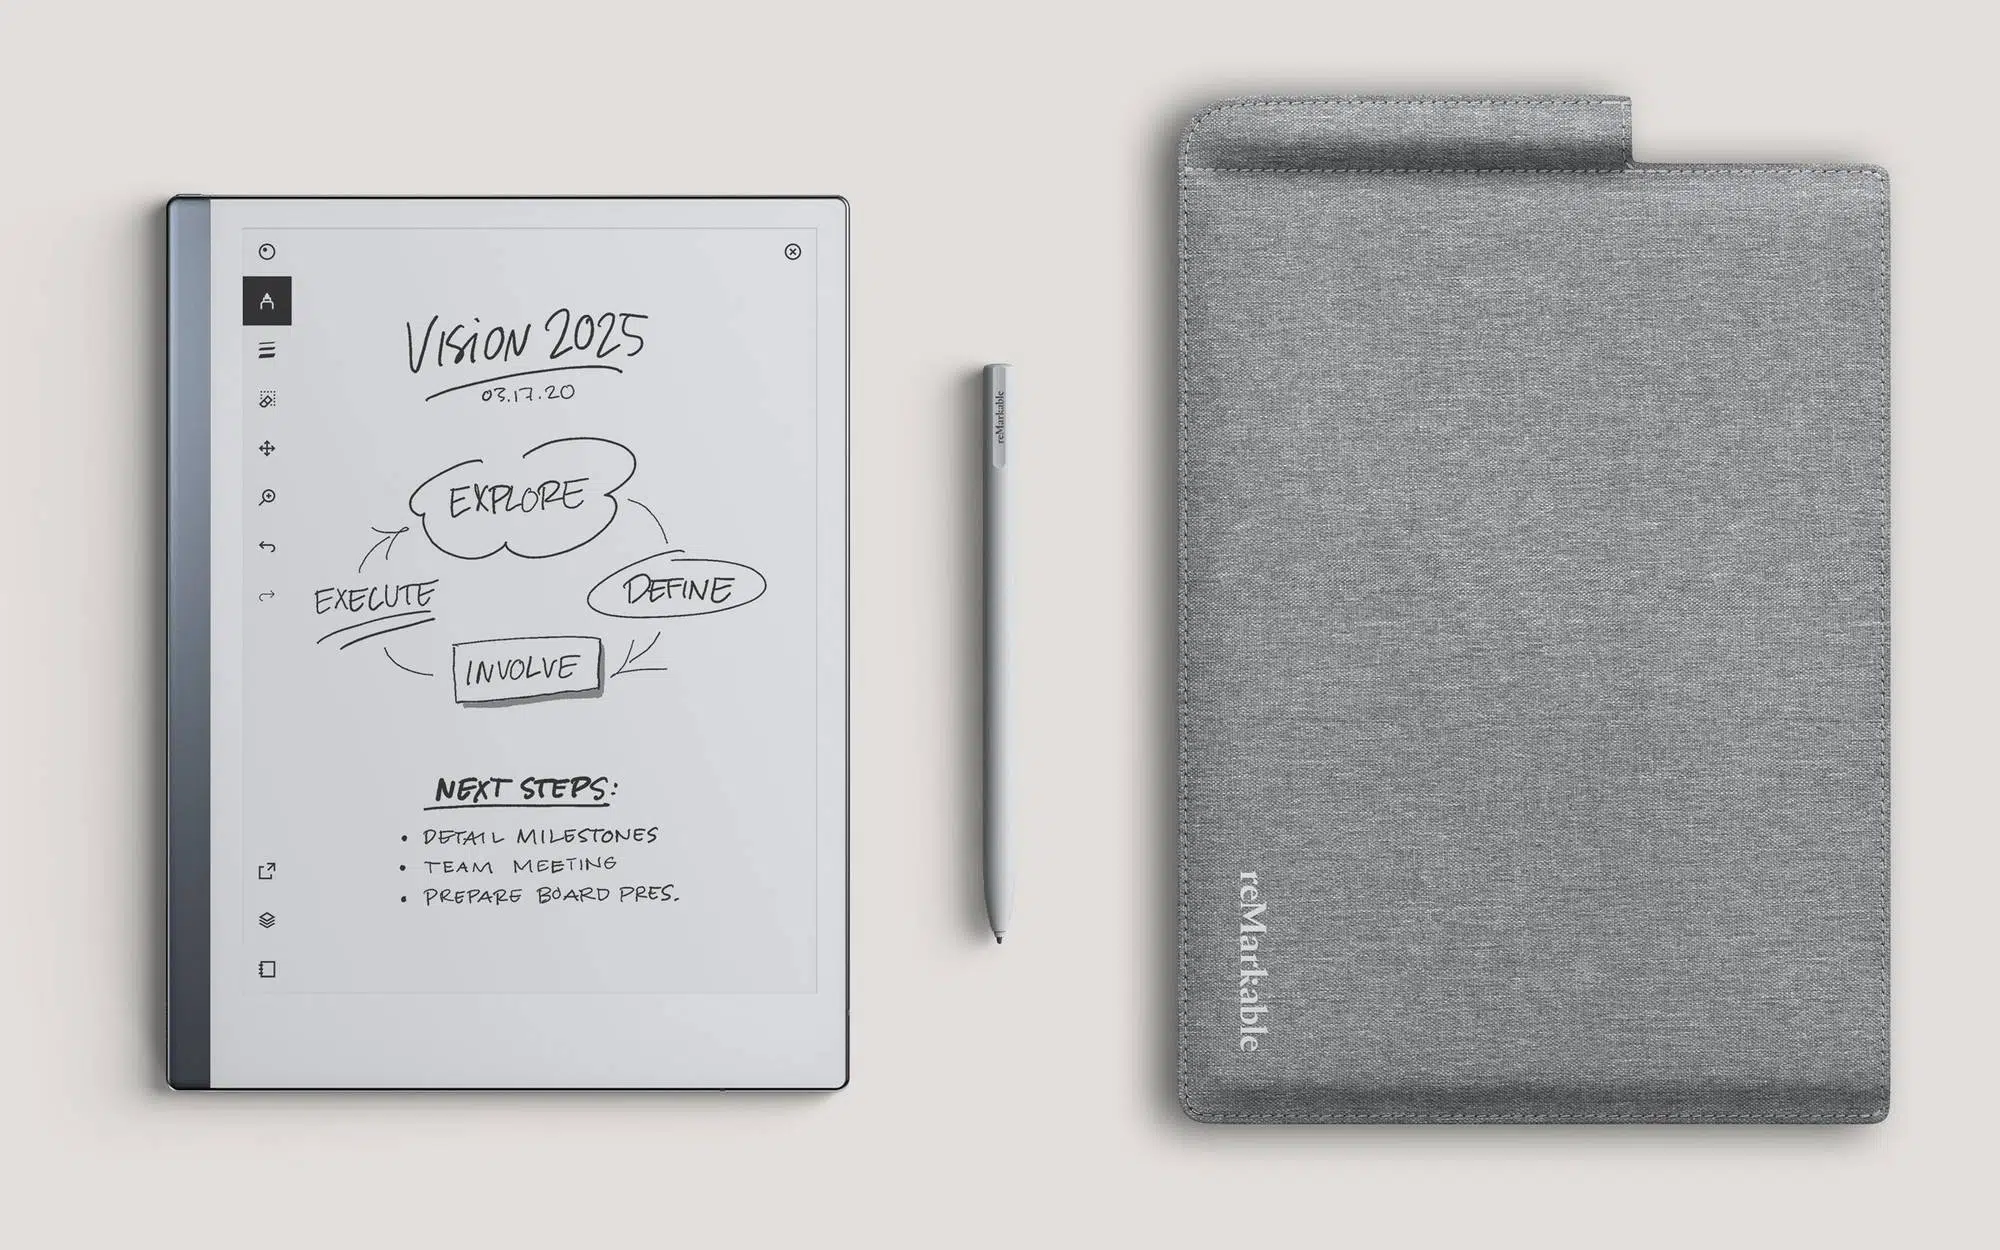 Vision 2025
03.17.20
EXPLORE
EXECUTE
DEFINE
INVOLVE
NEXT STEPS:
• DETAIL MILESTONES
• TEAM MEETING
• PREPARE BOARD PRES.
reMarkable
reMarkable